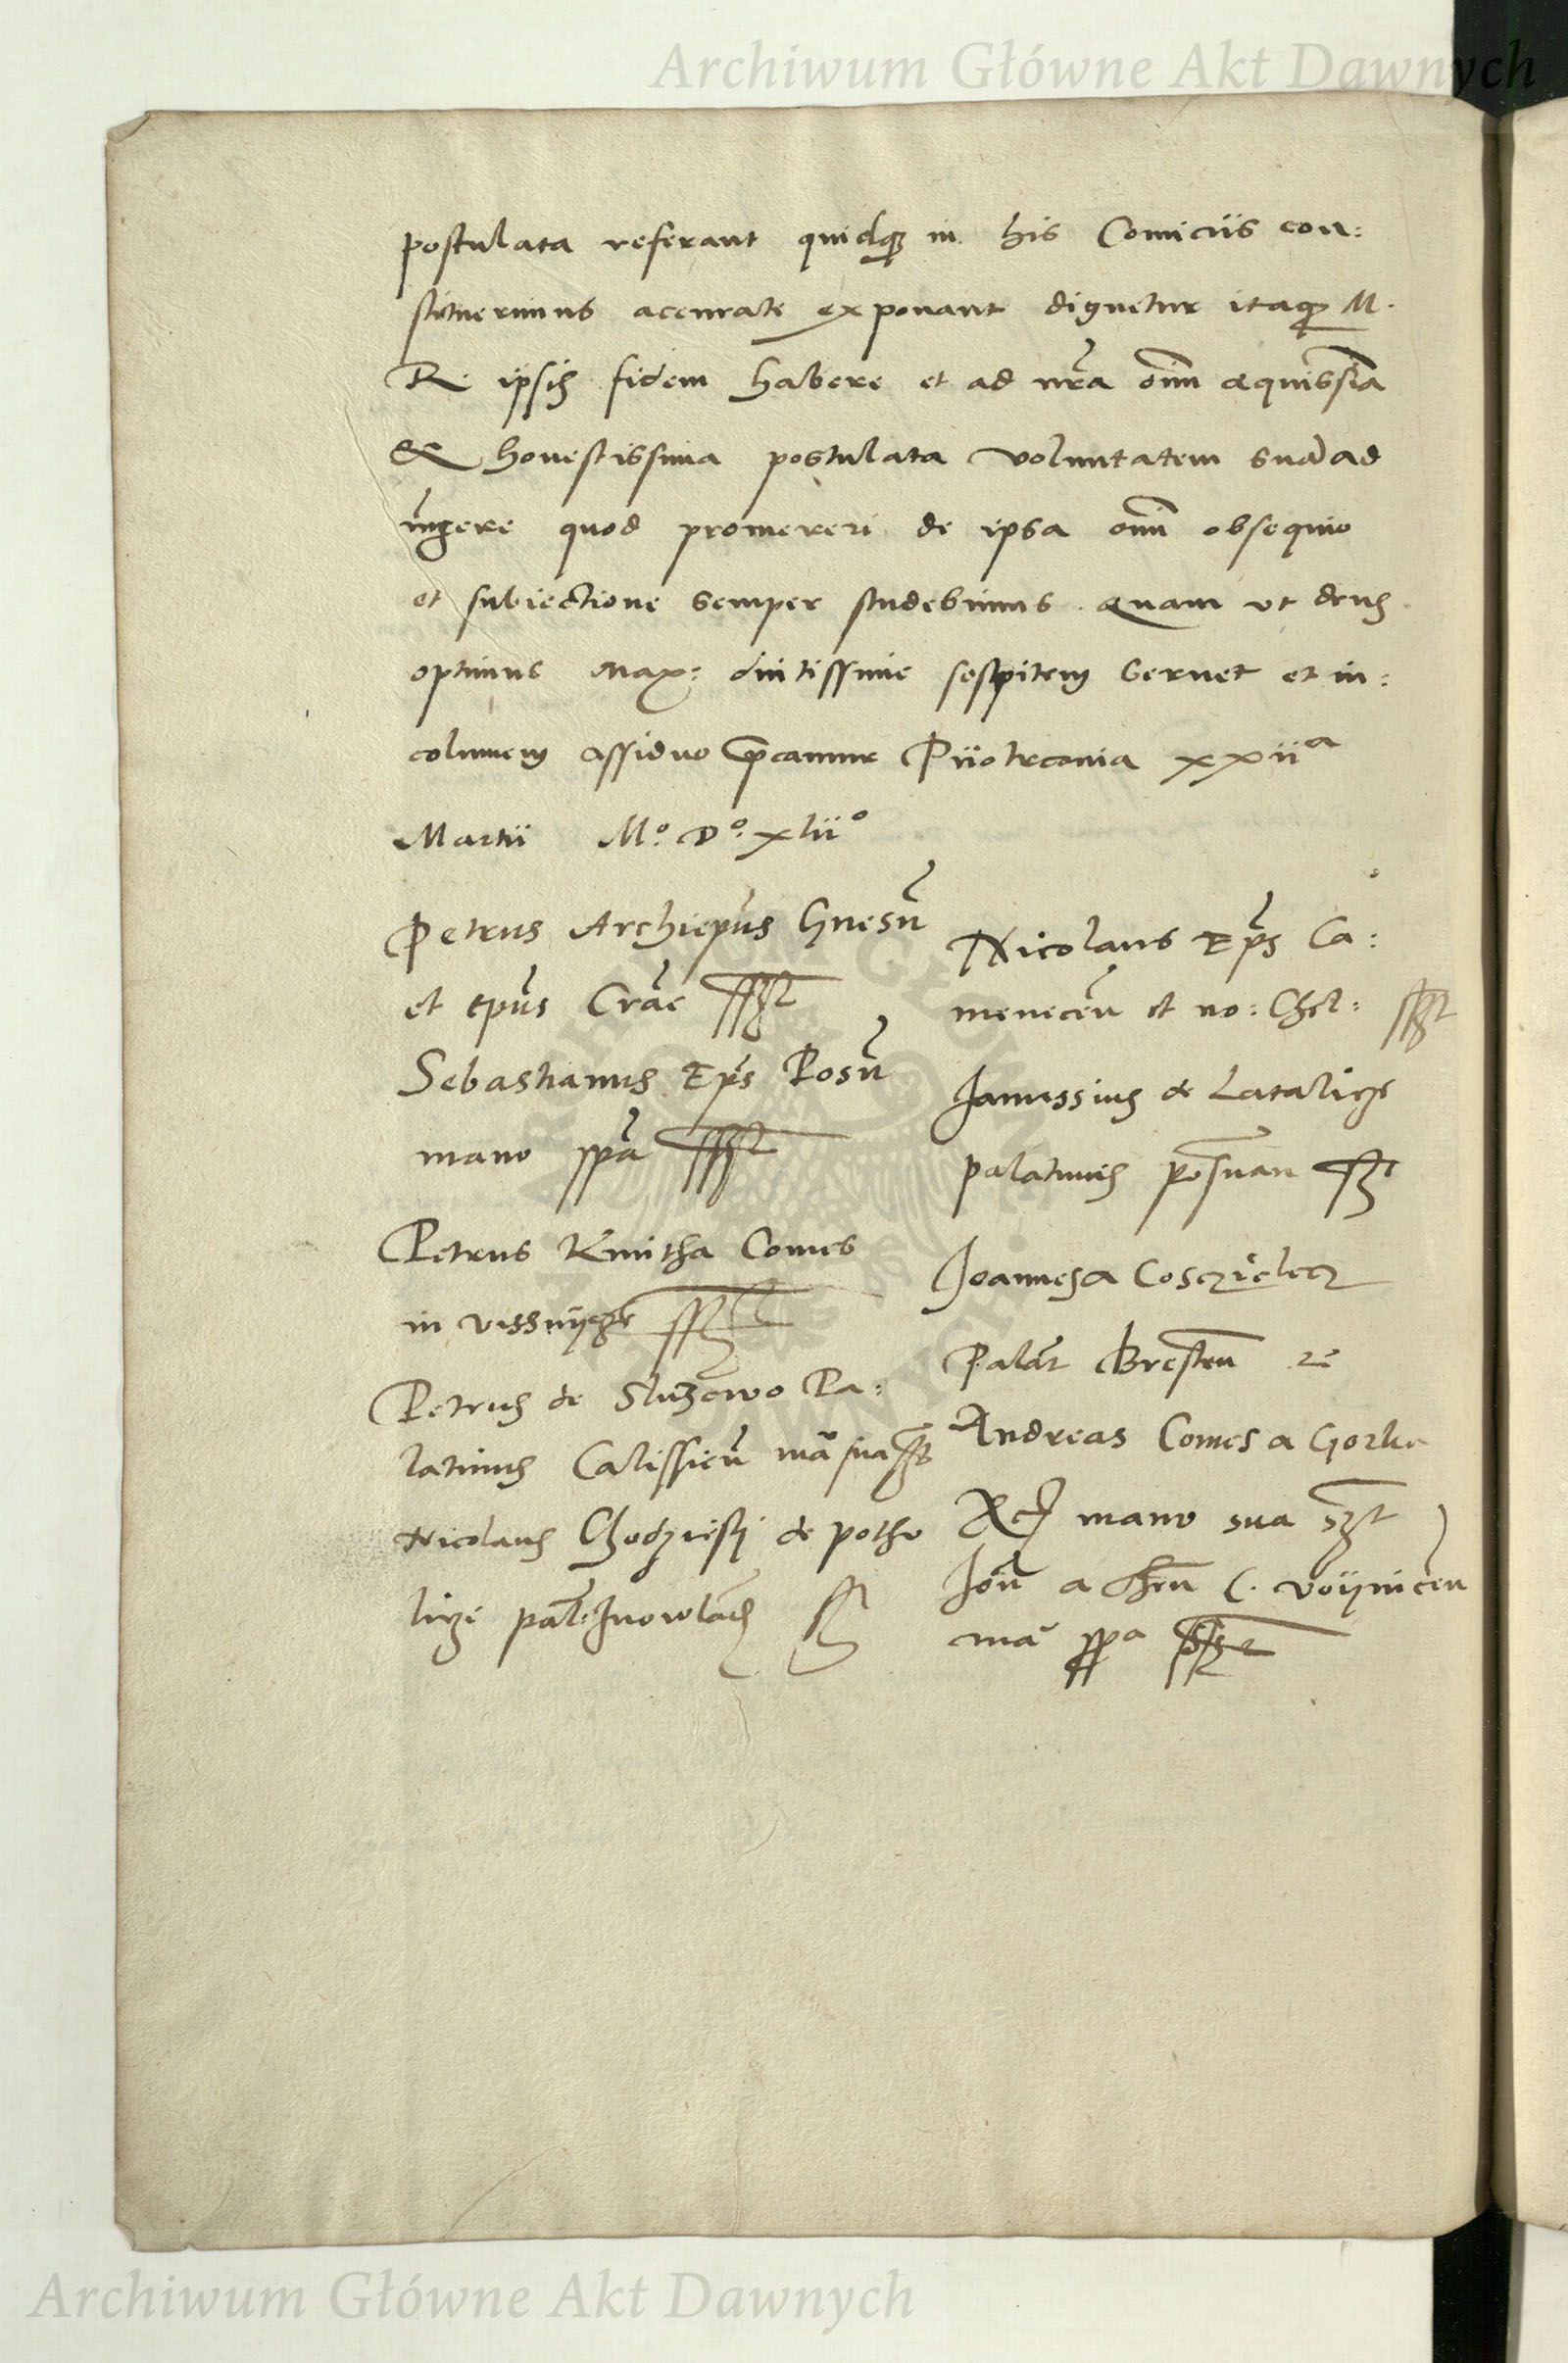 Archiwum Główne Akt Dawnych
postulata referant quidq₃ in his Comiciis con:
stituerimus accurate exponant dignetur itaq₃ M.
R. ipsis fidem habere et ad nr̃a om̃i aequissĩa
& honestissima postulata voluntatem suã ad
iũgere quod promereri de ipsa om̃i obsequio
et subiectione semper studebimus. Quam ut deus
optimus Max: diutissime sospitem servet et in:
columem assiduo p̄camur Piiotrcovia xxiiᵃ
Martii M.º D.º xlii.º
Petrus Archiepũs Gnesñ
et epũs Crãc sst
Sebastianus Ep̃s Posñ
mano pp̃a sst
Petrus Kmitha Comes
in Vissnijcze sst
Petrus de Sluzewo Pa:
latinus Calissień mã sua sst
Nicolaus Chodziesz de potho
lize pal: Inowlad
Nicolaus Ep̃s Ca:
meneceñ et no: Chel: sst
Janussius de Latalicze
palatinus posnan sst
Joannes a Coscziclecz
Palat Bresteñ
Andreas Comes a Gorka
mano sua sst
Joañ a Theñ C. Voijniceñ
mã ppᵃ sst
Archiwum Główne Akt Dawnych